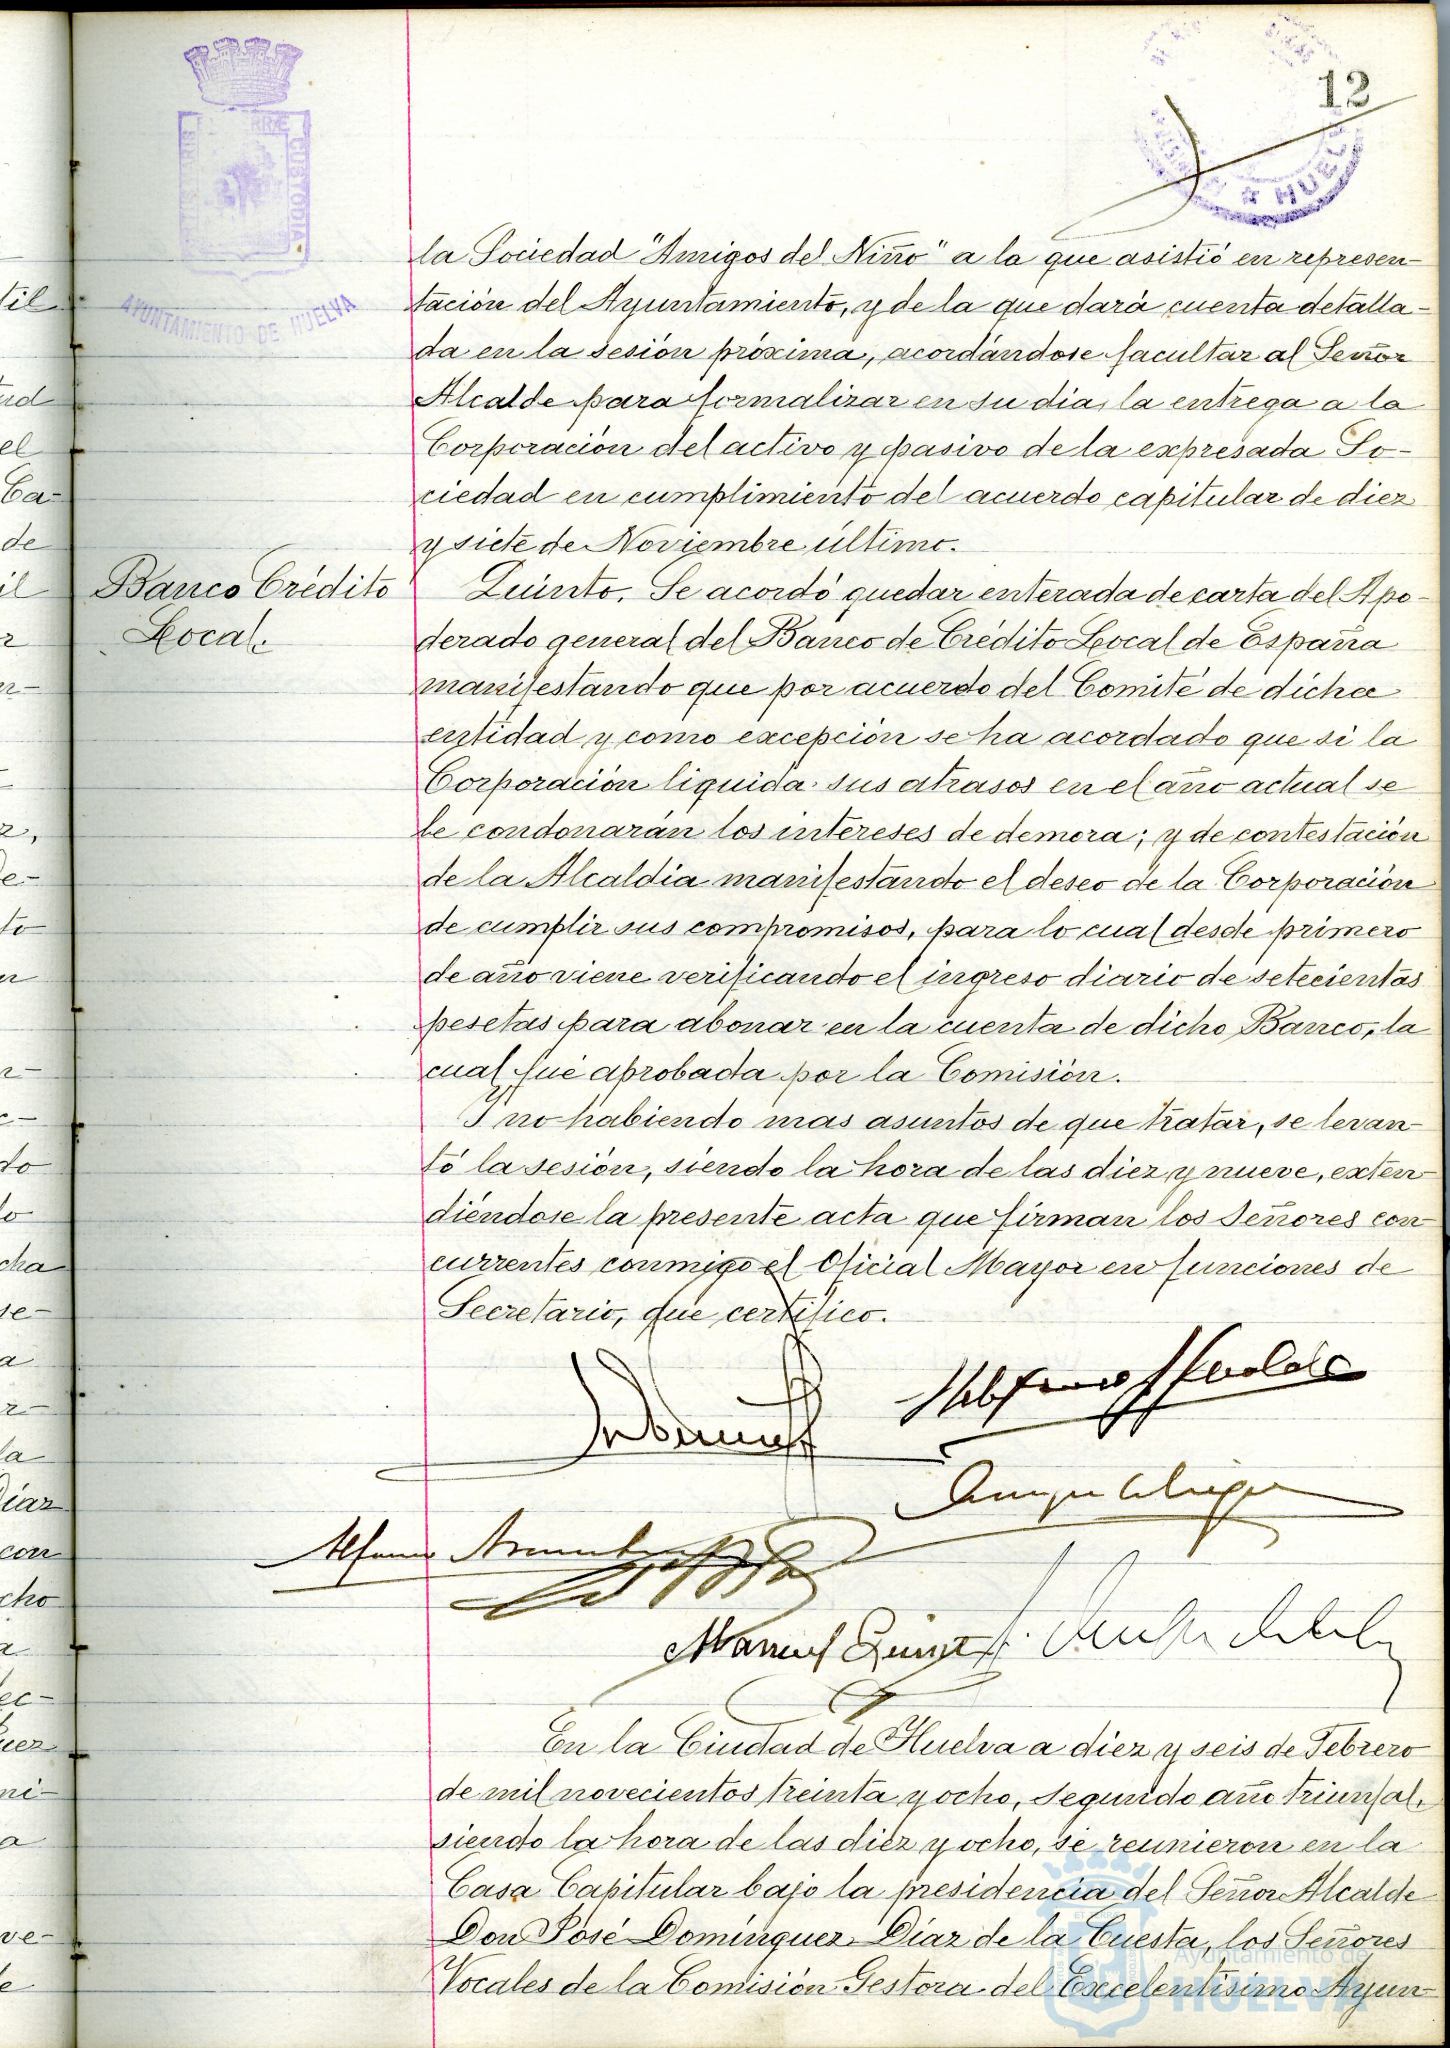 12
HUELVA
AYUNTAMIENTO DE HUELVA
CUSTODIA
la Sociedad "Amigos del Niño" a la que asistió en represen-
tación del Ayuntamiento, y de la que dará cuenta detalla-
da en la sesión próxima, acordándose facultar al Señor
Alcalde para formalizar en su dia, la entrega a la
Corporación del activo y pasivo de la expresada So-
ciedad en cumplimiento del acuerdo capitular de diez
y siete de Noviembre último.
Banco Crédito
Local.
Quinto. Se acordó quedar enterada de carta del Apo-
derado general del Banco de Crédito Local de España
manifestando que por acuerdo del Comité de dicha
entidad y como excepción se ha acordado que si la
Corporación liquida sus atrasos en el año actual se
le condonarán los intereses de demora; y de contestación
de la Alcaldía manifestando el deseo de la Corporación
de cumplir sus compromisos, para lo cual desde primero
de año viene verificando el ingreso diario de setecientas
pesetas para abonar en la cuenta de dicho Banco, la
cual fué aprobada por la Comisión.
Y no habiendo mas asuntos de que tratar, se levan-
tó la sesión, siendo la hora de las diez y nueve, exten-
diéndose la presente acta que firman los Señores con-
currentes conmigo el Oficial Mayor en funciones de
Secretario, que certifico.
Manuel
En la Ciudad de Huelva a diez y seis de Febrero
de mil novecientos treinta y ocho, segundo año triunfal,
siendo la hora de las diez y ocho, se reunieron en la
Casa Capitular bajo la presidencia del Señor Alcalde
Don José Domínguez Díaz de la Cuesta, los Señores
Vocales de la Comisión Gestora del Excelentísimo Ayun-
Ayuntamiento de
HUELVA